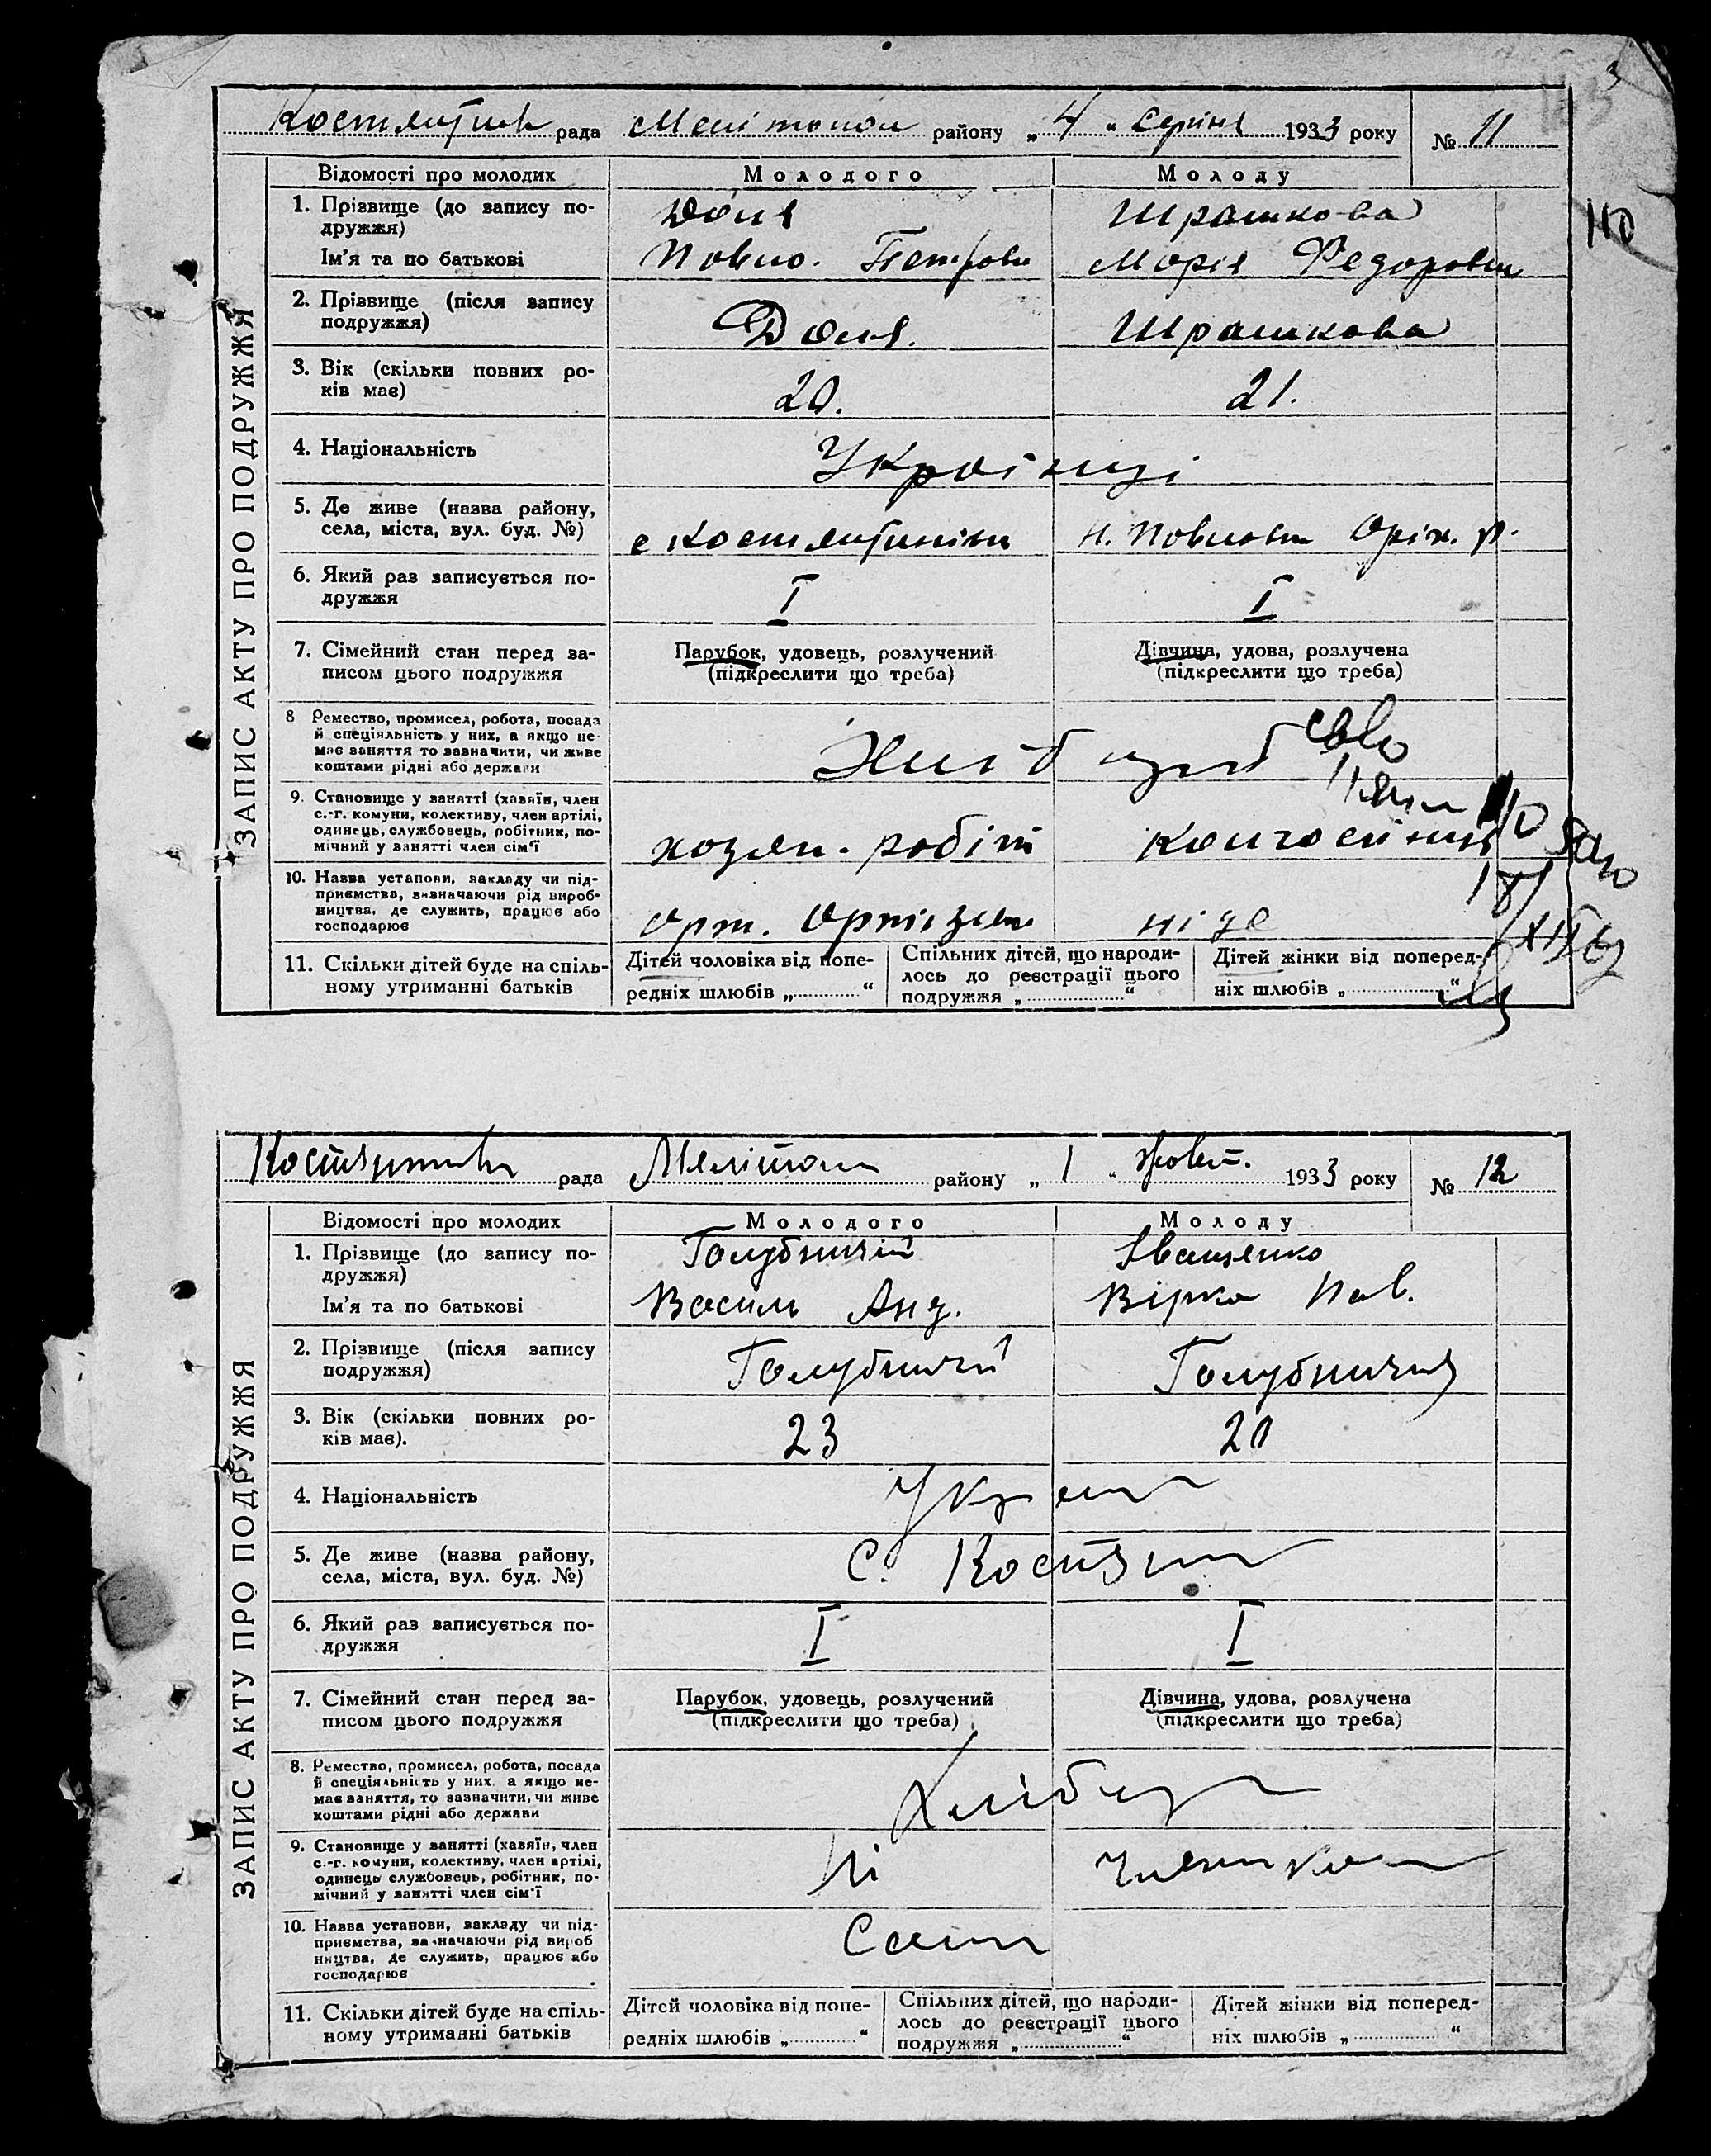 3
рада Мелітопол району „ 4 “ серпня 1933 року № 11
Відомості про молодих Молодого Молоду
1. Прізвище (до запису по-
дружжя) Доля Шрамкова
Ім'я та по батькові Павло. Петров Марія Федоровн
110
2. Прізвище (після запису
подружжя) Доля. Шрамкова
3. Вік (скільки повних ро-
ків має) 20. 21.
4. Національність Українці
5. Де живе (назва району,
села, міста, вул. буд. №) с Костянтинівка Н. Павловк Оріх. р.
6. Який раз записується по-
дружжя I I
7. Сімейний стан перед за-
писом цього подружжя Парубок, удовець, розлучений
(підкреслити що треба) Дівчина, удова, розлучена
(підкреслити що треба)
8 Ремество, промисел, робота, посада
й спеціяльність у них, а якщо не-
має заняття то зазначити, чи живе
коштами рідні або держави
9. Становище у занятті (хазяїн, член
с.-г. комуни, колективу, член артілі,
одинець, службовець, робітник, по-
мічний у занятті член сім'ї хозяи. робіт колгоспниця
10. Назва установи, закладу чи під-
приємства, визначаючи рід вироб-
ництва, де служить, працює або
господарює арт. ніде
11. Скільки дітей буде на спіль-
ному утриманні батьків
Дітей чоловіка від попе-
редніх шлюбів „ “
Спільних дітей, що народи-
лось до реєстрації цього
подружжя „ “
Дітей жінки від поперед-
ніх шлюбів „ “
ЗАПИС АКТУ ПРО ПОДРУЖЖЯ
рада Мелітопол району „ 1 “ жовт. 1933 року № 12
Відомості про молодих Молодого Молоду
1. Прізвище (до запису по-
дружжя) Голубничий Іващенко
Ім'я та по батькові Василь Анд. Вірка Пав.
2. Прізвище (після запису
подружжя) Голубничий Голубничия
3. Вік (скільки повних ро-
ків має). 23 20
4. Національність Україн
5. Де живе (назва району,
села, міста, вул. буд. №) С. Костян
6. Який раз записується по-
дружжя I I
7. Сімейний стан перед за-
писом цього подружжя Парубок, удовець, розлучений
(підкреслити що треба) Дівчина, удова, розлучена
(підкреслити що треба)
8. Ремество, промисел, робота, посада
й спеціяльність у них, а якщо не-
має заняття, то зазначити, чи живе
коштами рідні або держави Хлібор
9. Становище у занятті (хазяїн, член
с.-г. комуни, колективу, член артілі,
одинець службовець, робітник, по-
мічний у занятті член сім'ї
10. Назва установи, закладу чи під-
приємства, зазначаючи рід вироб
ництва, де служить, працює або
господарює
11. Скільки дітей буде на спіль-
ному утриманні батьків
Дітей чоловіка від попе-
редніх шлюбів „ “
Спільних дітей, що народи-
лось до реєстрації цього
подружжя „ “
Дітей жінки від поперед-
ніх шлюбів „ “
ЗАПИС АКТУ ПРО ПОДРУЖЖЯ